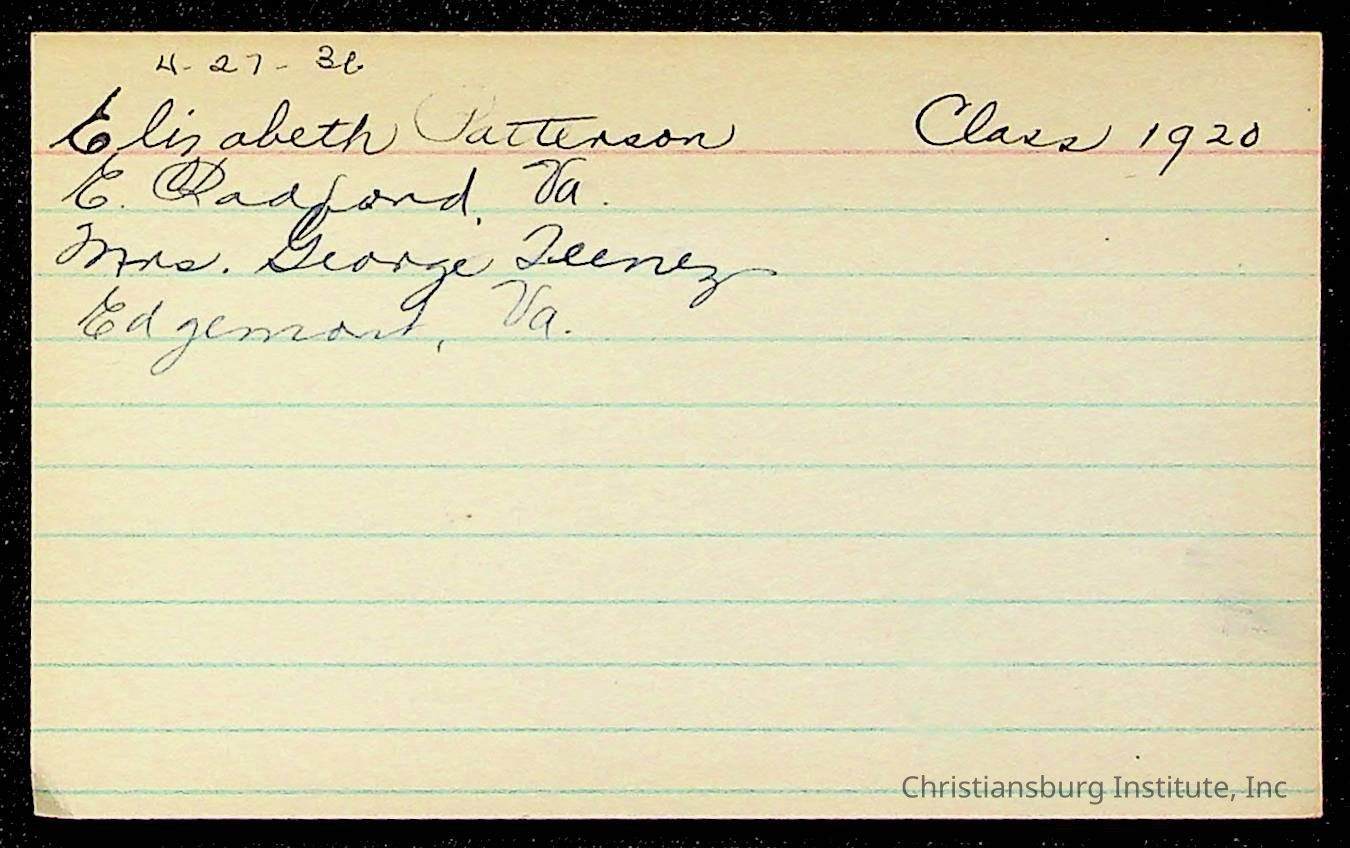 4-27-36
Elizabeth Patterson Class 1920
E. Radford, Va.
Mrs. George
Edgemont, Va.
Christiansburg Institute, Inc